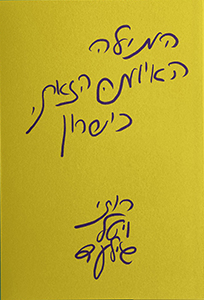 המילה
האיומה הזאת,
כישרון
רוני
ויטל
גילעד